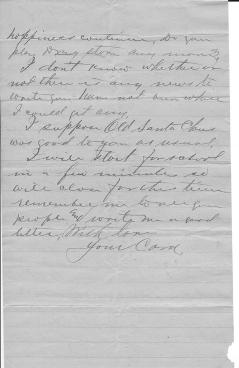 happiness continue. Do you
play Drug store any more?
I don't know whether or
not there is any news to
write you. Have not been where
I could get any.
I suppose Old Santa Claus
was good to you as usual.
I will start for school
in a few minutes so
will close for this time
remember me to all your
people and write me a good
letter. With love
Your